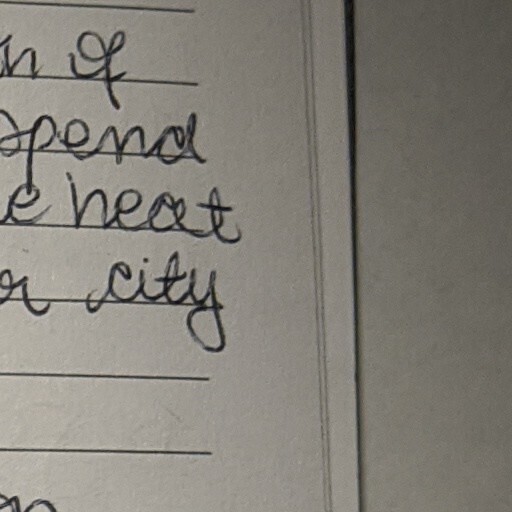 n of
spend
e heat
r city